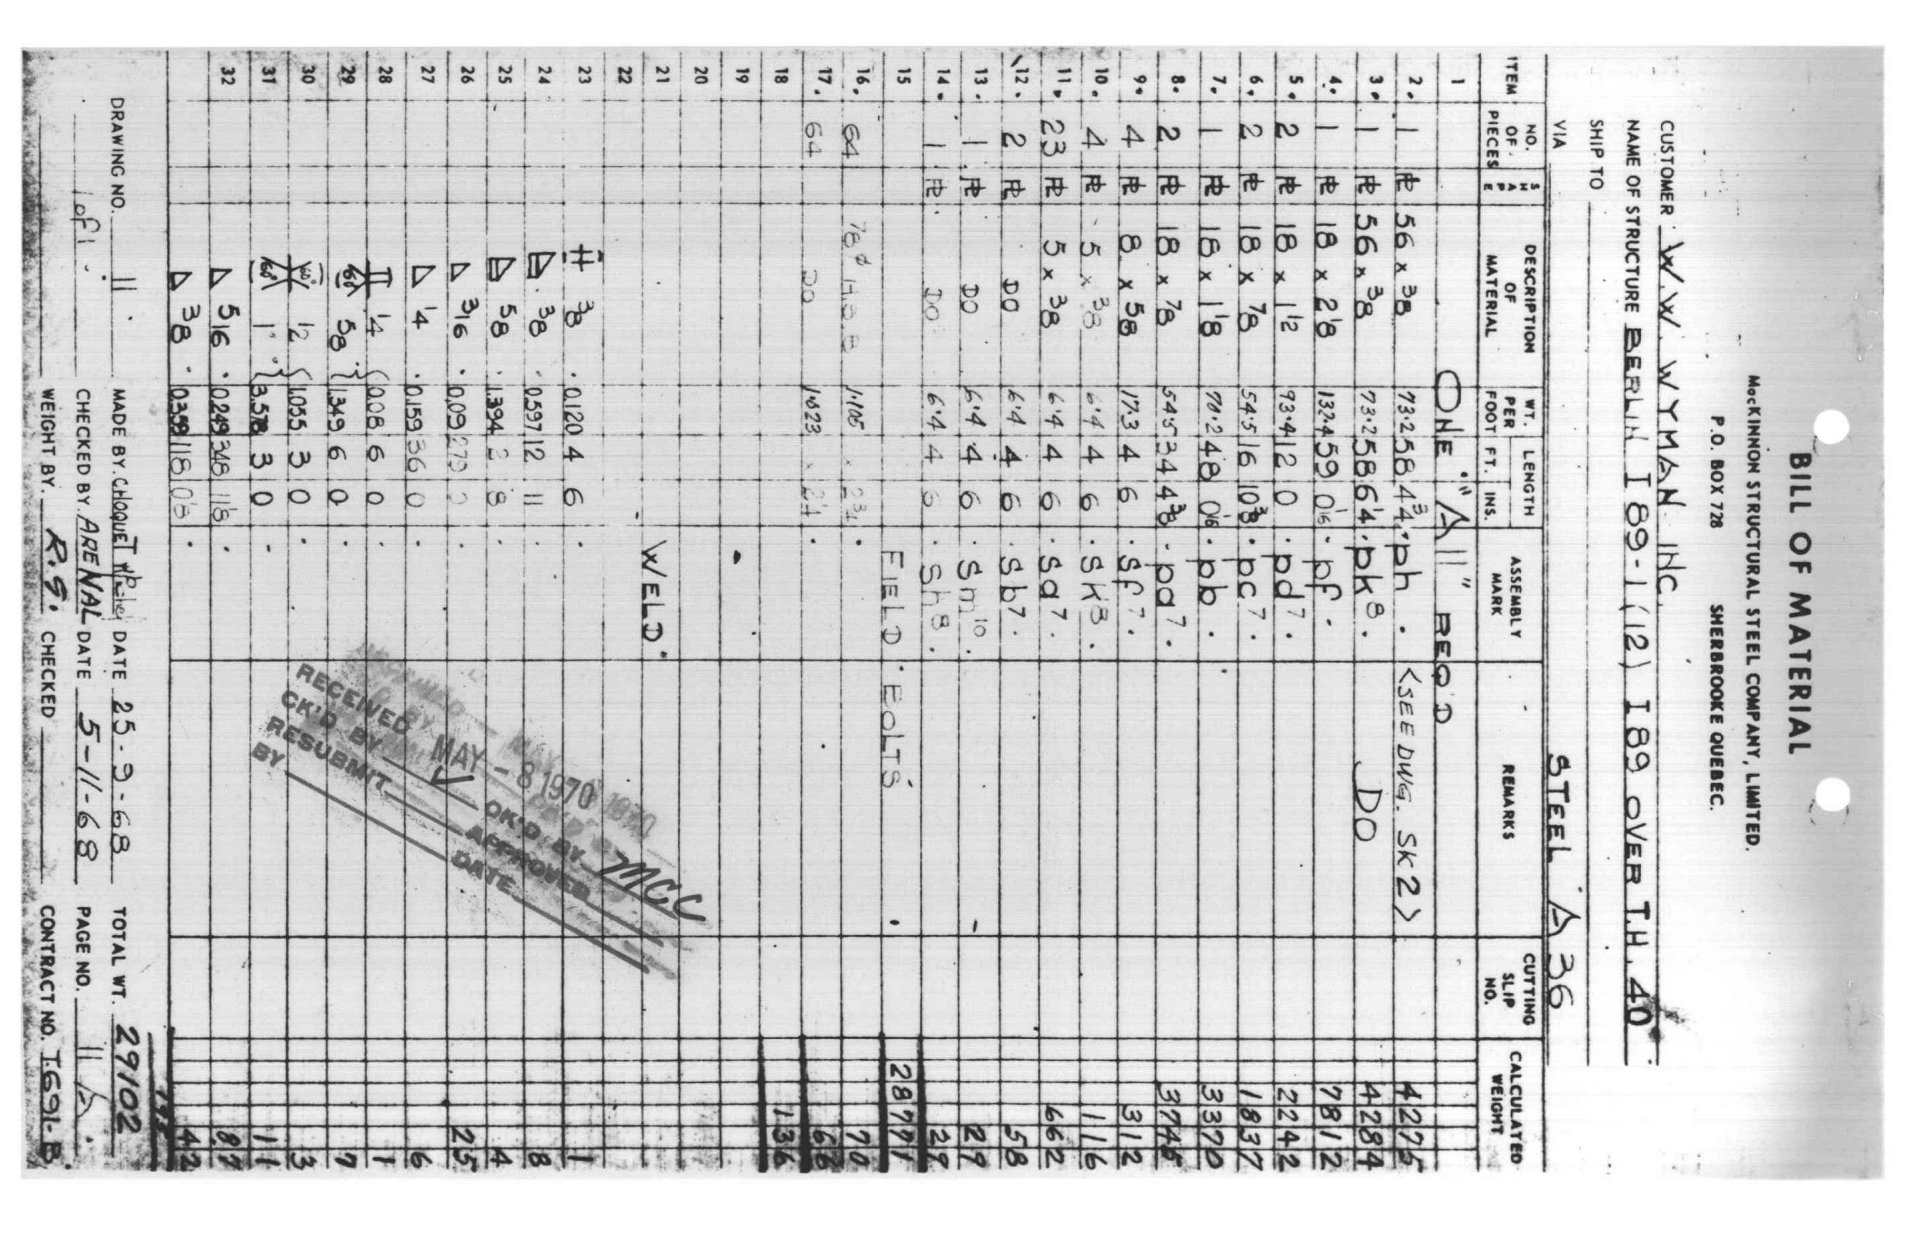 BILL OF MATERIAL
McKINNON STRUCTURAL STEEL COMPANY, LIMITED.
P.O. BOX 728 SHERBROOKE QUEBEC.
CUSTOMER W.W. WYMAN INC.
NAME OF STRUCTURE BERLIN I 89-1 (12) I 89 OVER T.H. 40
SHIP TO
VIA STEEL A 36
ITEM NO. OF PIECES SHAPE DESCRIPTION OF MATERIAL WT. PER FOOT LENGTH FT. INS. ASSEMBLY MARK REMARKS CUTTING SLIP NO. CALCULATED WEIGHT
1 ONE "A11" REQ D
2. 1 PL 56 x 3/8 73.2 58 4 3/4 ph <SEE DWG. SK2> 4275
3. 1 PL 56 x 3/8 73.2 58 6 1/4 pk8 DO 4284
4. 1 PL 18 x 2 1/8 132.4 59 0 1/16 pf 7812
5. 2 PL 18 x 1 1/2 93.4 12 0 pd7 2242
6. 2 PL 18 x 7/8 54.5 16 10 3/8 pc7 1837
7. 1 PL 18 x 1 1/8 70.2 48 0 1/16 pb 3370
8. 2 PL 18 x 7/8 54.5 34 4 3/8 pa7 3746
9. 4 PL 8 x 5/8 17.3 4 6 Sf7 312
10. 4 PL 5 x 3/8 6.4 4 6 Sk8 116
11. 23 PL 5 x 3/8 6.4 4 6 Sa7 662
12. 2 PL DO 6.4 4 6 Sb7 58
13. 1 PL DO 6.4 4 6 Sm10 29
14. 1 PL DO 6.4 4 6 Sh8 29
15 FIELD BOLTS 28771
16. 64 7/8 φ H.S.B 1.105 x 2 3/4 70
17. 64 DO 1.023 x 2 1/4 66
18 136
19
20
21 WELD
22
23 3/8 0.120 4 6 1
24 3/8 0.597 12 11 8
25 5/8 1.394 2 8 4
26 3/16 0.09 279 0 25
27 1/4 0.159 36 0 6
28 1/4 0.08 6 0 1
29 60° 5/8 1.349 6 0 7
30 60° 1/2 1.055 3 0 3
31 60° 1" 3.578 3 0 11
32 5/16 0.249 348 11/8 87
3/8 0.359 118 0 1/8 42
195
RECEIVED MAY - 8 1970
CK'D BY OK'D BY MCC
RESUBMIT APPROVED
BY DATE
DRAWING NO. 11 MADE BY CHOQUET DATE 25-9-68 TOTAL WT. 29102
1 of 1 CHECKED BY ARENAL DATE 5-11-68 PAGE NO. 11 A
WEIGHT BY R.G. CHECKED CONTRACT NO. T.691-B